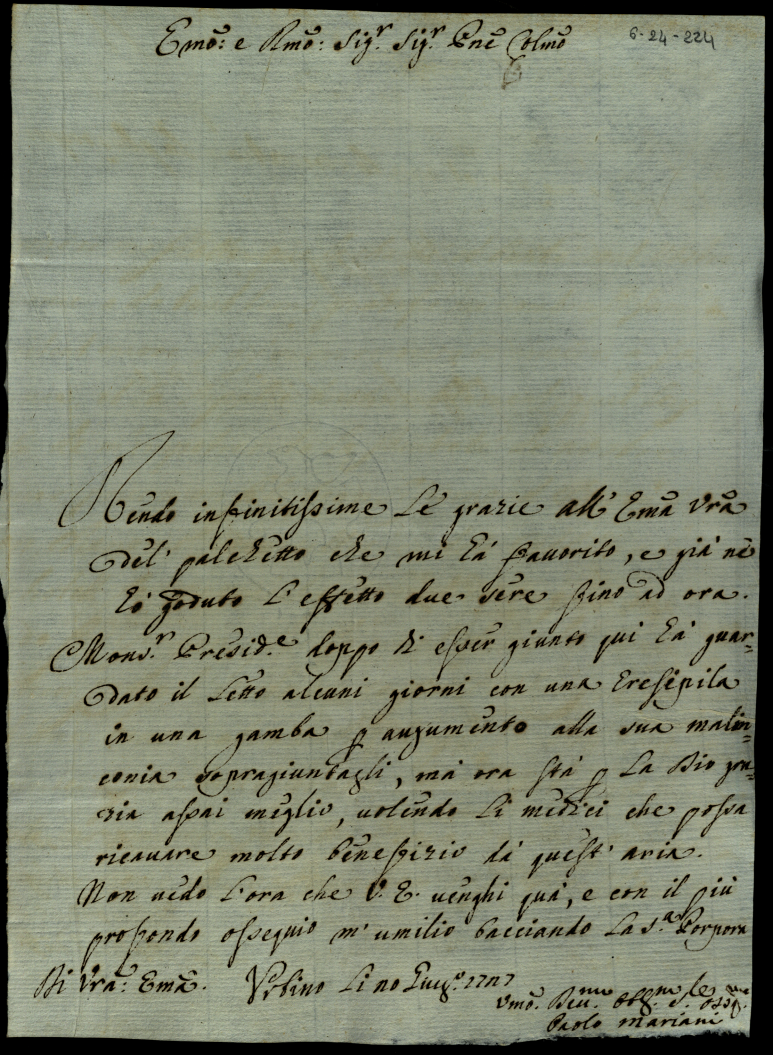 Emõ: e Rmõ: Sigr. Sigr. Pnẽ Colmõ
6-24-224
Rendo infinitissime Le grazie all' Emã Vrã
del' palchetto che mi hà favorito, e già nè
hò goduto l'effetto due sere fino ad ora.
Monsr. Preside doppo di esser giunto qui hà guar-
dato il Letto alcuni giorni con una Eresipila
in una gamba p augumento alla sua malin-
conia sopragiuntagli, mà ora stà p La Dio gra-
zia assai meglio, volendo li medici che possa
ricavare molto benefizio dà quest' aria.
Non vedo l'ora che V. E. venghi quà, e con il più
profondo ossequio m' umilio bacciando La Sa. Porpora
Di Vrã: Emã. Urbino Li Lug°.
Umõ. Devmo
Paolo Mariani